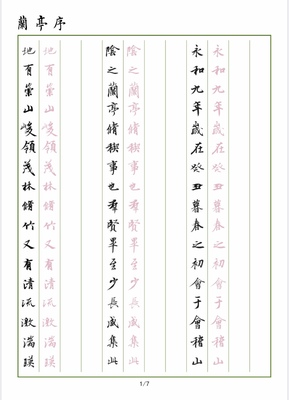 蘭亭序
永和九年歲在癸丑暮春之初會于會稽山
永和九年歲在癸丑暮春之初會于會稽山
陰之蘭亭脩禊事也羣賢畢至少長咸集此
陰之蘭亭脩禊事也羣賢畢至少長咸集此
地有崇山峻領茂林脩竹又有清流激湍暎
地有崇山峻領茂林脩竹又有清流激湍暎
1/7